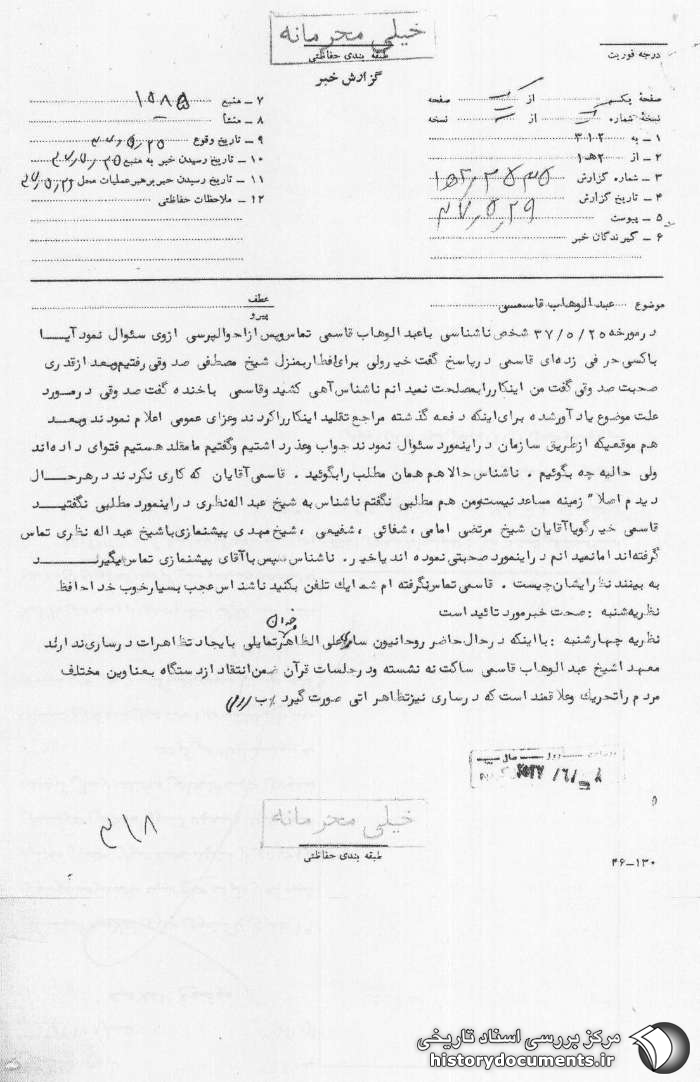 خیلی محرمانه
طبقه بندی حفاظتی
گزارش خبر
درجه فوریت
صفحه یکم از صفحه
نسخه شماره از نسخه
۱ - به ۳۱۲
۲ - از ۲هـ۱
۳ - شماره گزارش
۴ - تاریخ گزارش ۳۷٫۵٫۲۹
۵ - پیوست
۶ - گیرندگان خبر
۷ - منبع ۱۵۸۵
۸ - منشأ
۹ - تاریخ وقوع ۳۷٫۵٫۲۵
۱۰ - تاریخ رسیدن خبر به منبع ۳۷٫۵٫۲۵
۱۱ - تاریخ رسیدن خبر برهبر عملیات محل
۱۲ - ملاحظات حفاظتی
موضوع عبدالوهاب قاسمی
عطف
پیرو
در مورخه ۳۷/۵/۲۵ شخص ناشناسی با عبدالوهاب قاسمی تماس و پس از احوالپرسی از وی سئوال نمود آیا
با کسی حرفی زده‌ای قاسمی در پاسخ گفت خیر ولی برای افطار بمنزل شیخ مصطفی صدوقی رفتیم و بعد از قدری
صحبت صدوقی گفت من اینکار را بمصلحت نمیدانم ناشناس آهی کشید و قاسمی با خنده گفت صدوقی در مورد
علت موضوع یادآور شده برای اینکه دفعه گذشته مراجع تقلید اینکار را کردند و عزای عمومی اعلام نمودند و بعد
هم موقعیکه از طریق سازمان در اینمورد سئوال نمودند جواب و عذر داشتیم و گفتیم ما مقلد هستیم فتوای داده‌اند
ولی حالیه چه بگوئیم . ناشناس حالا هم همان مطلب را بگوئید . قاسمی آقایان که کاری نکردند در هر حال
دیدم اصلا" زمینه مساعد نیست و من هم مطلبی نگفتم ناشناس به شیخ عبداله نظری در اینمورد مطلبی نگفتید
قاسمی خیر گویا آقایان شیخ مرتضی امامی ، شفائی ، شفیعی ، شیخ مهدی پیشنمازی با شیخ عبداله نظری تماس
گرفته‌اند اما نمیدانم در اینمورد صحبتی نموده اند یا خیر . ناشناس سپس با آقای پیشنمازی تماس بگیرید
به بینند نظر ایشان چیست . قاسمی تماس نگرفته ام شما یک تلفن بکنید ناشناس عجب بسیار خوب خداحافظ
نظریه شنبه : صحت خبر مورد تائید است
نظریه چهارشنبه : با اینکه در حال حاضر روحانیون ساری علی الظاهر تمایلی بایجاد تظاهرات در ساری ندارند
معهذا شیخ عبدالوهاب قاسمی ساکت نه نشسته و در جلسات قرآن ضمن انتقاد از دستگاه بعناوین مختلف
مردم را تحریک و علاقمند است که در ساری نیز تظاهراتی صورت گیرد
خیلی محرمانه
طبقه بندی حفاظتی
۳۱۸
۴۶-۱۳۰
مرکز بررسی اسناد تاریخی
historydocuments.ir